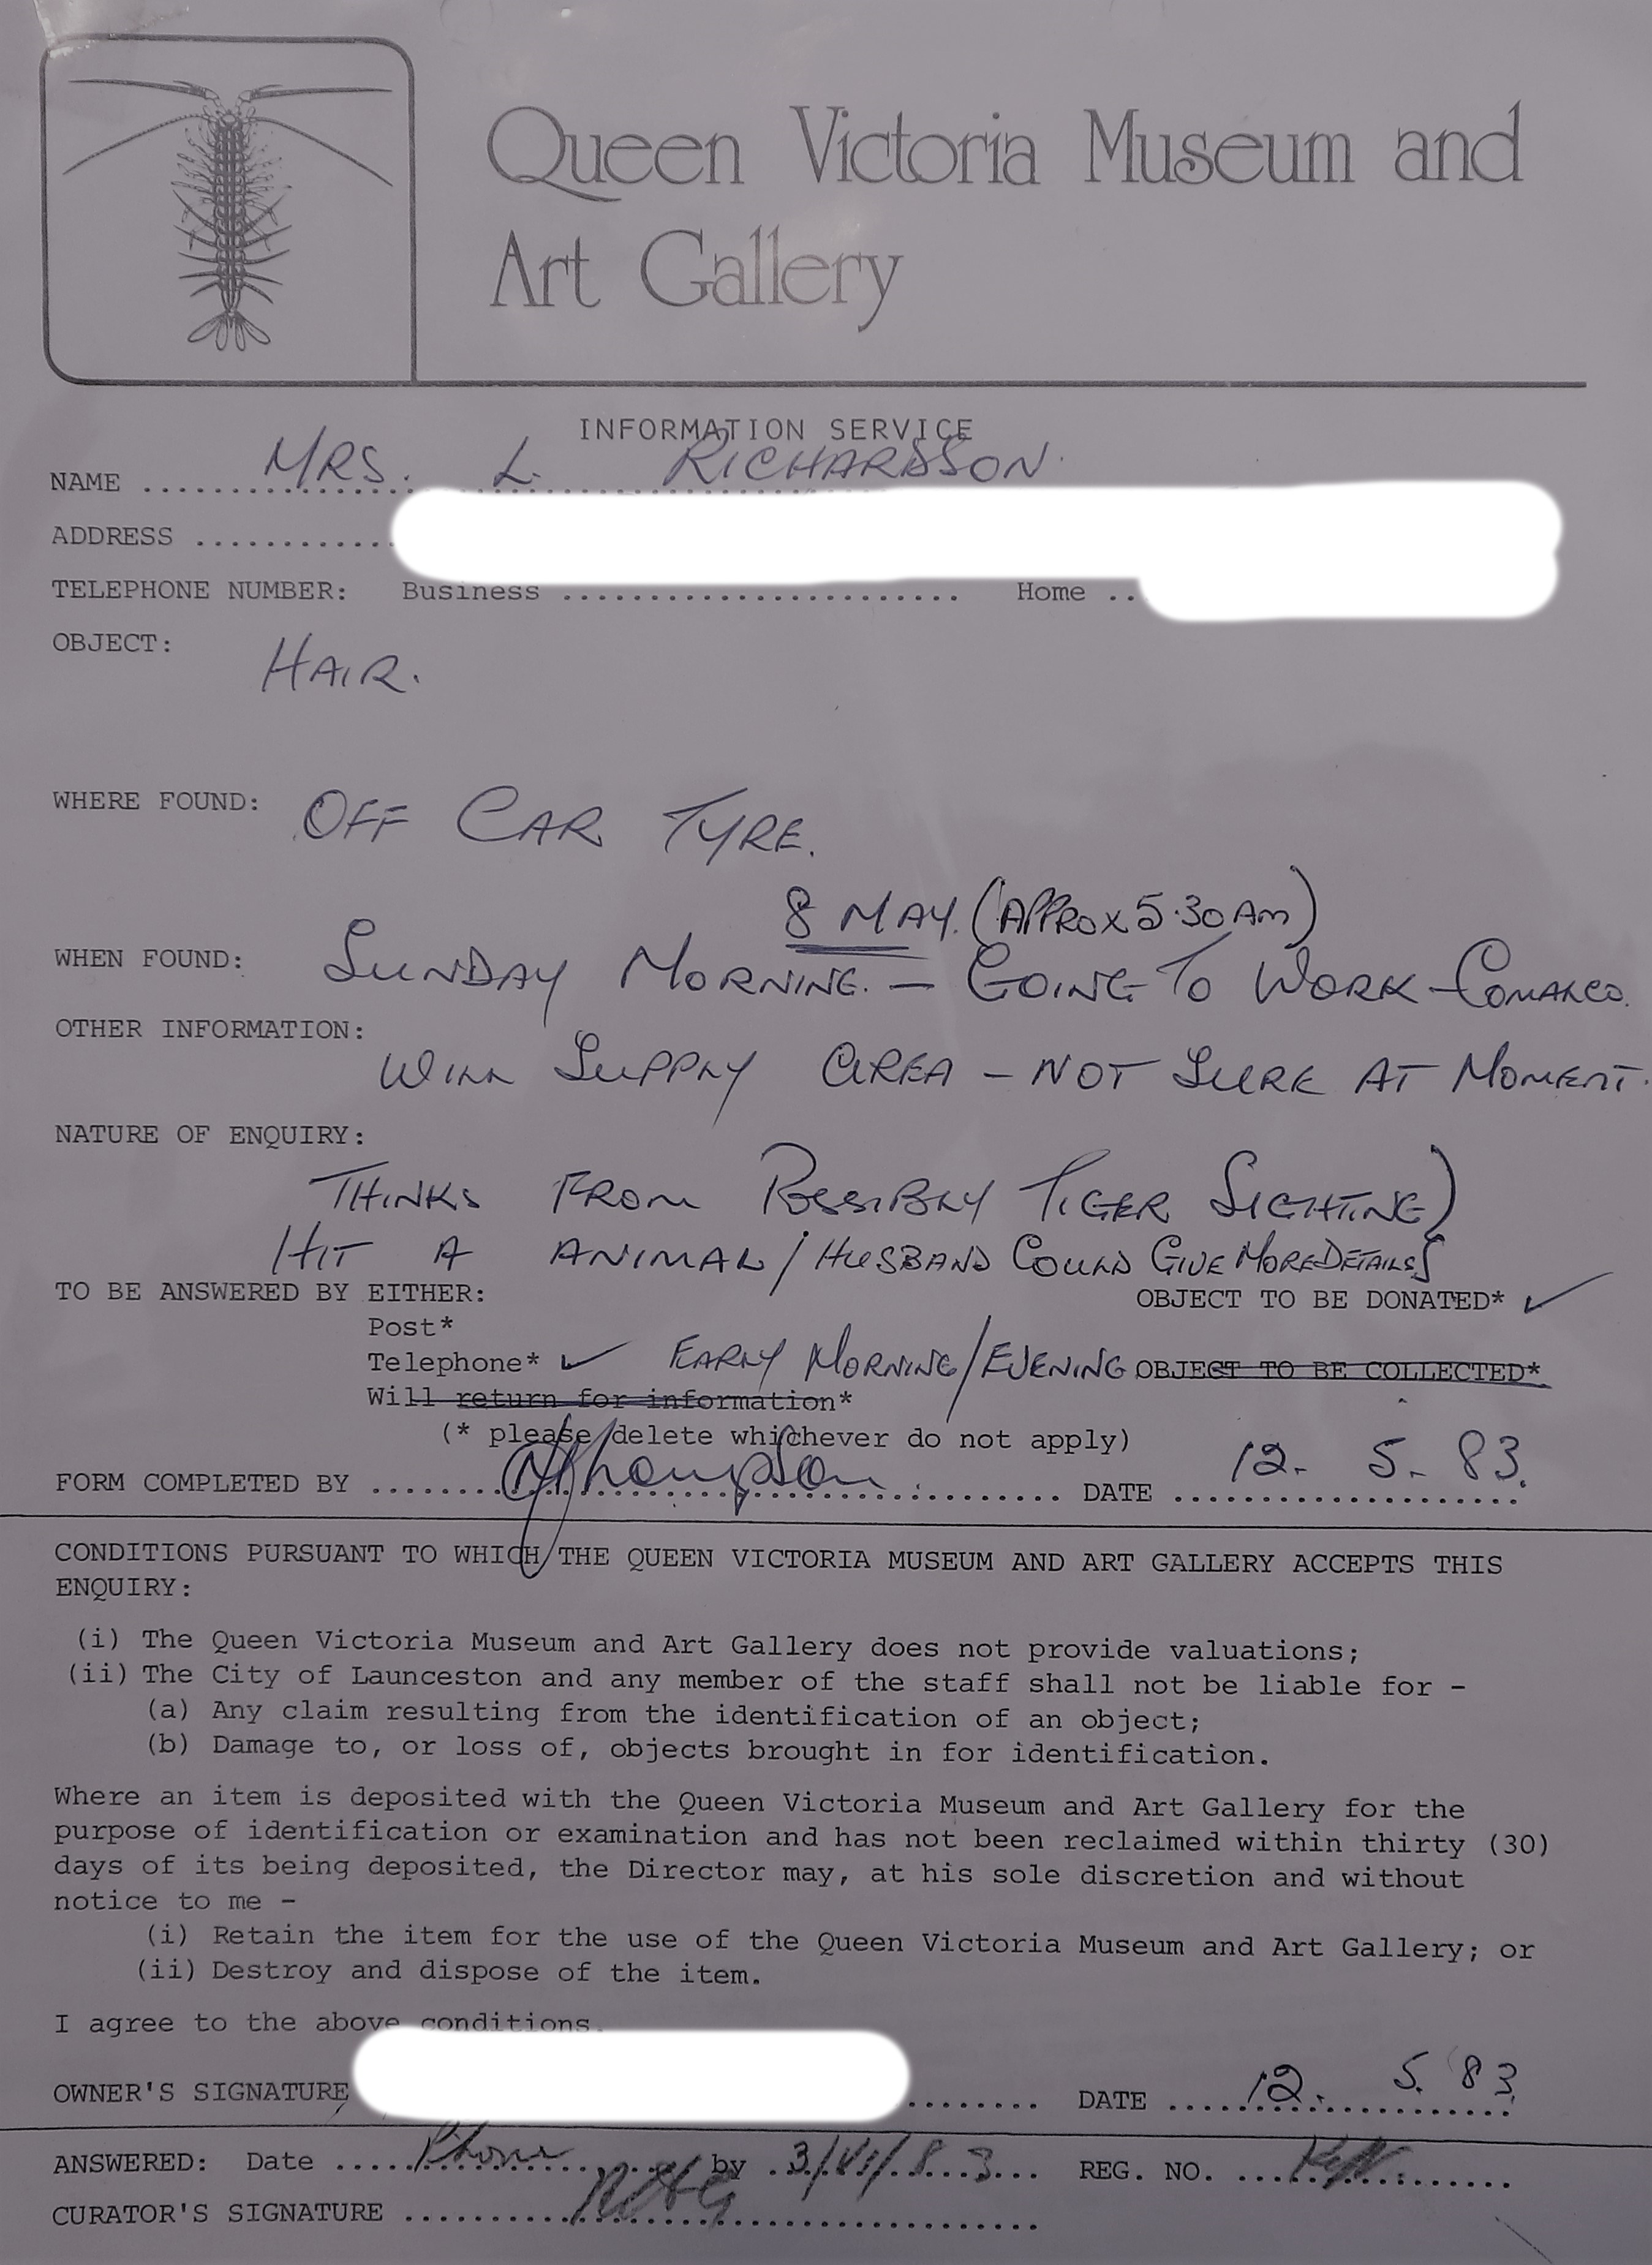 Queen Victoria Museum and
Art Gallery
INFORMATION SERVICE
NAME ........ MRS. L. RICHARDSON.
ADDRESS ...........
TELEPHONE NUMBER: Business ....................... Home ..
OBJECT: HAIR.
WHERE FOUND: OFF CAR TYRE.
8 MAY. (APPROX 5.30 AM)
WHEN FOUND: SUNDAY MORNING. — GOING TO WORK - COMALCO.
OTHER INFORMATION:
WILL SUPPLY AREA - NOT SURE AT MOMENT.
NATURE OF ENQUIRY:
THINKS FROM POSSIBLY TIGER SIGHTING)
HIT A ANIMAL / HUSBAND COULD GIVE MORE DETAILS}
TO BE ANSWERED BY EITHER: OBJECT TO BE DONATED* ✓
Post*
Telephone* ✓ EARLY MORNING/EVENING OBJECT TO BE COLLECTED*
Will return for information*
(* please delete whichever do not apply)
FORM COMPLETED BY ........ Thompson ........ DATE 12. 5. 83.
CONDITIONS PURSUANT TO WHICH THE QUEEN VICTORIA MUSEUM AND ART GALLERY ACCEPTS THIS
ENQUIRY:
(i) The Queen Victoria Museum and Art Gallery does not provide valuations;
(ii) The City of Launceston and any member of the staff shall not be liable for -
(a) Any claim resulting from the identification of an object;
(b) Damage to, or loss of, objects brought in for identification.
Where an item is deposited with the Queen Victoria Museum and Art Gallery for the
purpose of identification or examination and has not been reclaimed within thirty (30)
days of its being deposited, the Director may, at his sole discretion and without
notice to me -
(i) Retain the item for the use of the Queen Victoria Museum and Art Gallery; or
(ii) Destroy and dispose of the item.
I agree to the above conditions.
OWNER'S SIGNATURE ........ DATE 12. 5. 83.
ANSWERED: Date ..... Phone ..... by .3/VI/83... REG. NO. ....
CURATOR'S SIGNATURE ........